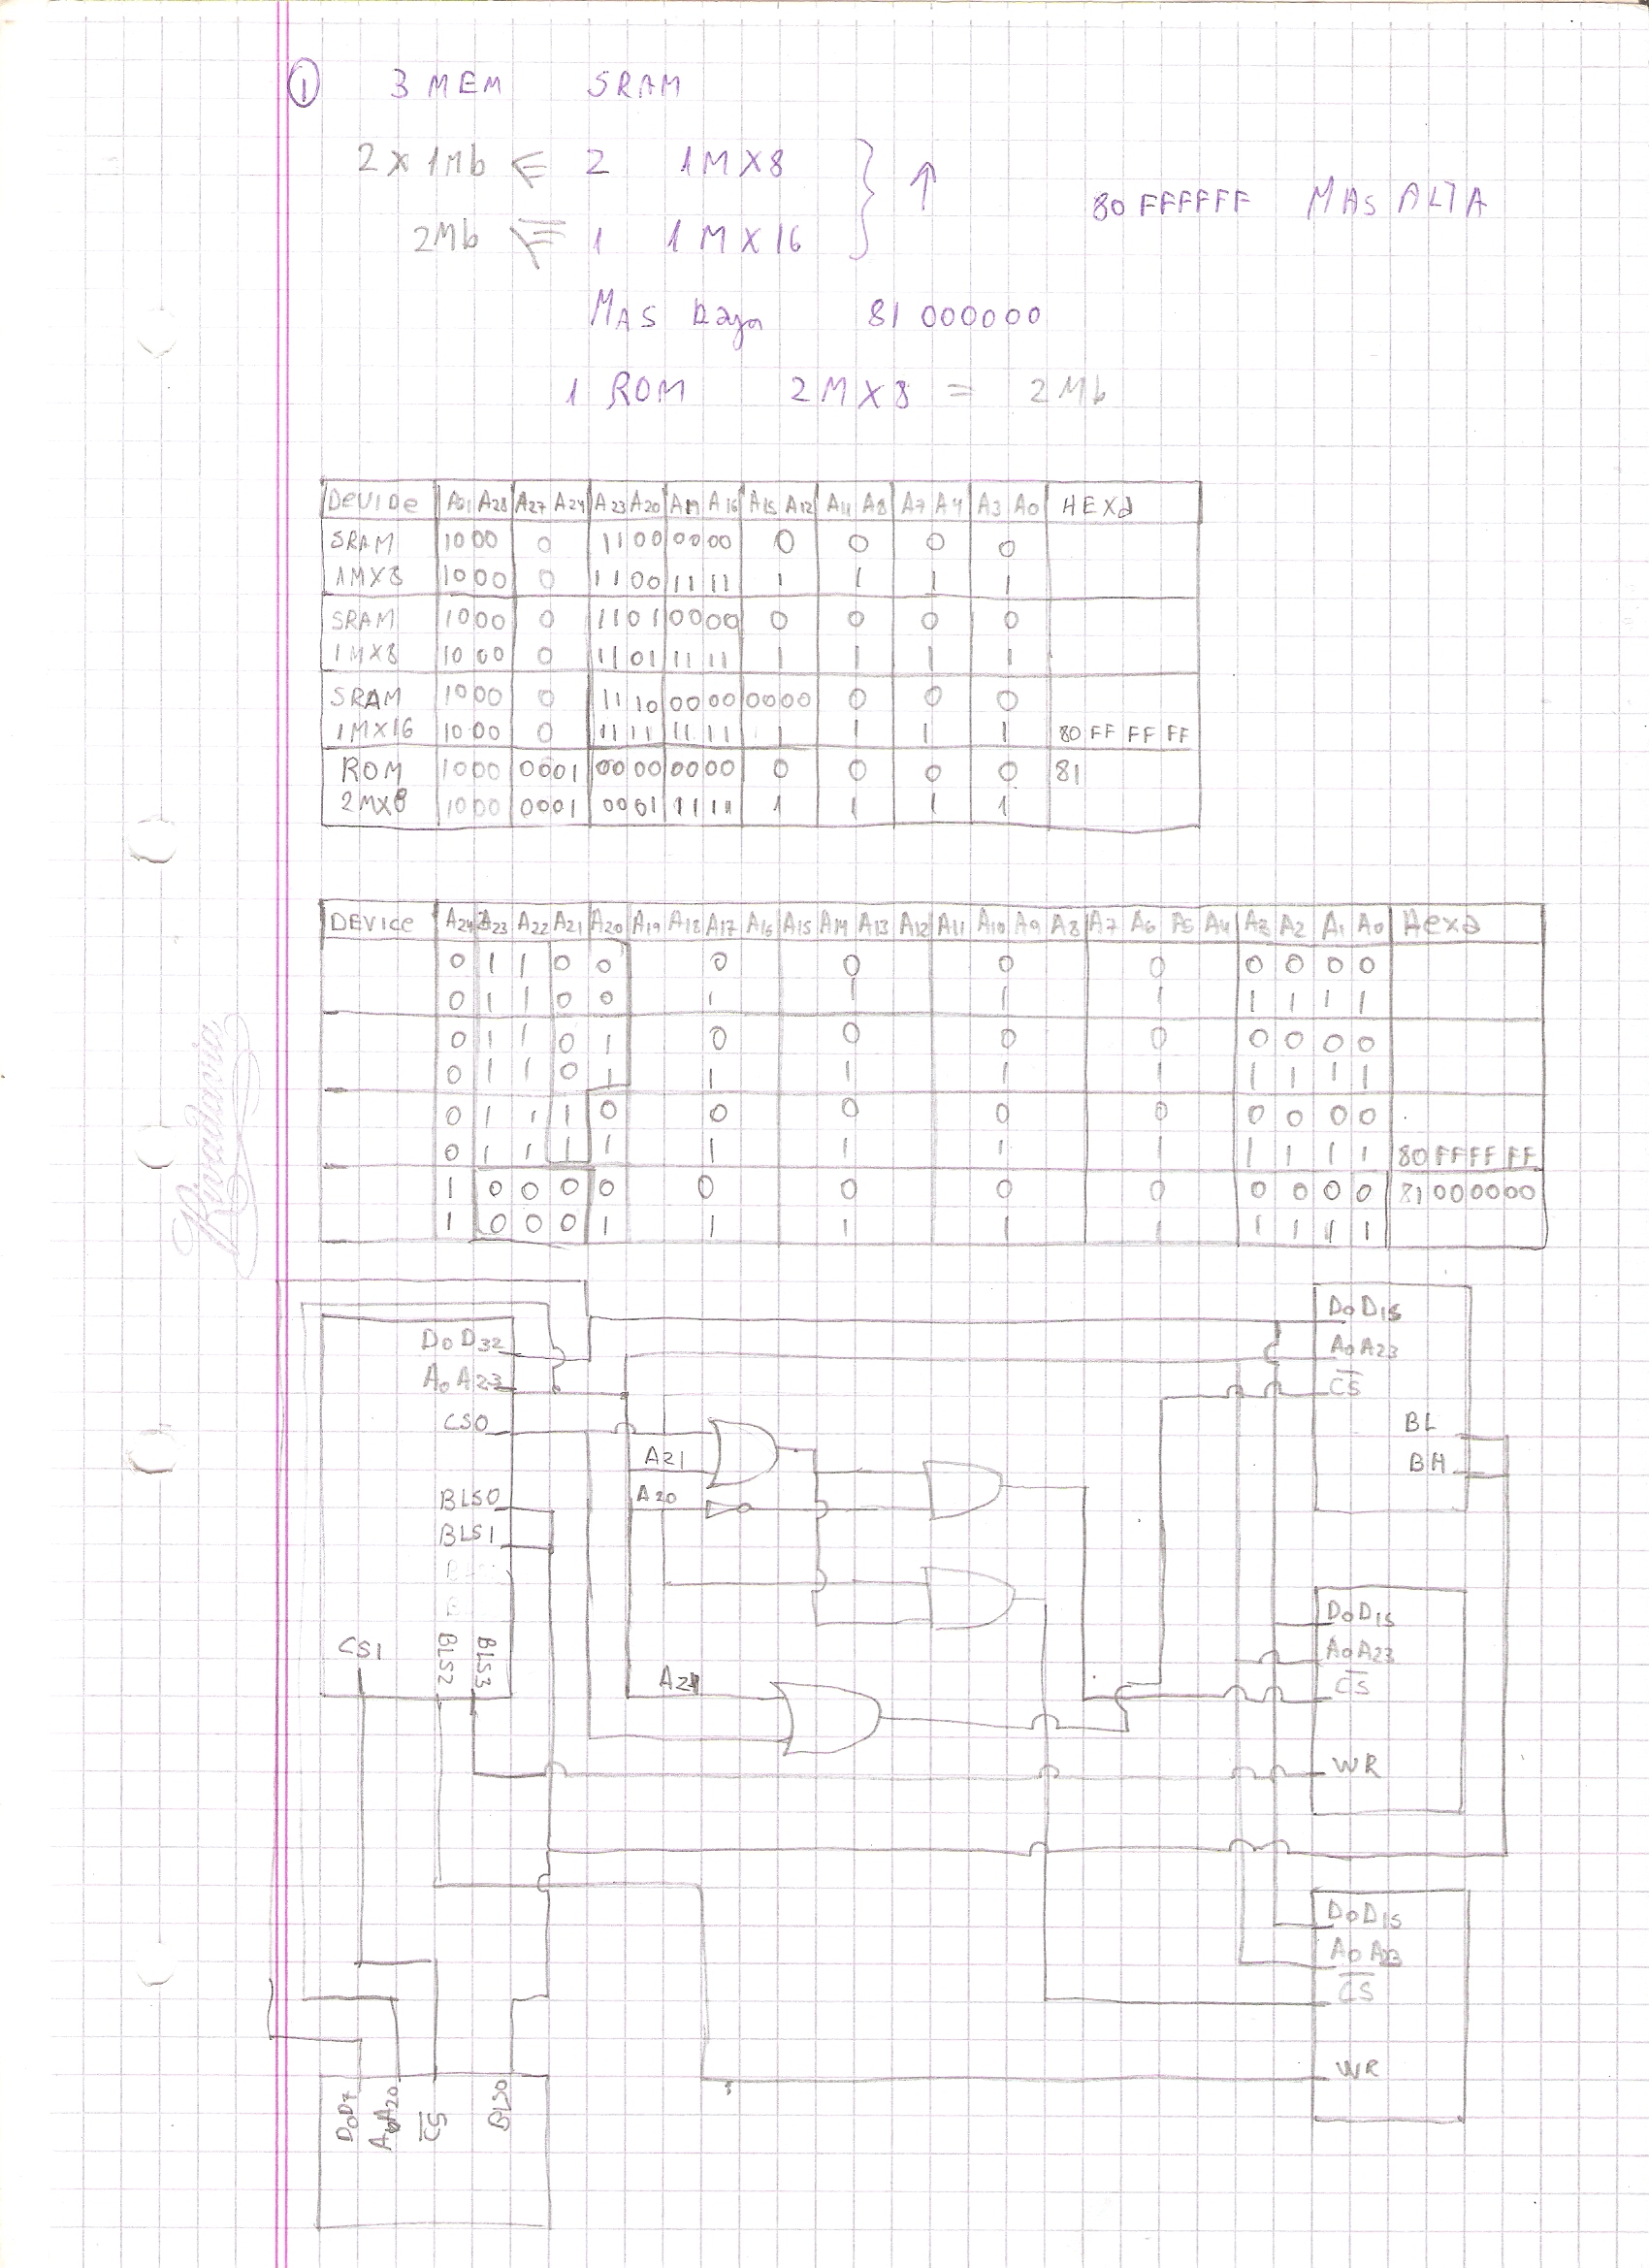 1 3 MEM SRAM
2 x 1Mb ⇐ 2 1MX8
80 FFFFFF MAS ALTA
2Mb ⇐ 1 1MX16
MAS Baja 81 000000
1 ROM 2MX8 = 2Mb
DEVIDe A31 A28 A27 A24 A23 A20 A19 A16 A15 A12 A11 A8 A7 A4 A3 A0 HEXa
SRAM 1000 0 1100 0000 0 0 0 0
1MX8 1000 0 1100 1111 1 1 1 1
SRAM 1000 0 1101 0000 0 0 0 0
1MX8 1000 0 1101 1111 1 1 1 1
SRAM 1000 0 1110 0000 0000 0 0 0
1MX16 1000 0 1111 1111 1 1 1 1 80 FF FF FF
ROM 1000 0001 0000 0000 0 0 0 0 81
2MX8 1000 0001 0001 1111 1 1 1 1
DEVICe A24 A23 A22 A21 A20 A19 A18 A17 A16 A15 A14 A13 A12 A11 A10 A9 A8 A7 A6 A5 A4 A3 A2 A1 A0 Hexa
0 1 1 0 0 0 0 0 0 0 0 0 0
0 1 1 0 0 1 1 1 1 1 1 1 1
0 1 1 0 1 0 0 0 0 0 0 0 0
0 1 1 0 1 1 1 1 1 1 1 1 1
0 1 1 1 0 0 0 0 0 0 0 0 0
0 1 1 1 1 1 1 1 1 1 1 1 1 80 FFFF FF
1 0 0 0 0 0 0 0 0 0 0 0 0 81 000000
1 0 0 0 1 1 1 1 1 1 1 1 1
Rivadavia
D0 D32
A0 A23
CS0
BLS0
BLS1
CS1
BLS2
BLS3
A21
A20
A21
D0 D15
A0 A23
CS
BL
BH
D0 D15
A0 A23
CS
WR
D0 D15
A0 A23
CS
WR
D0 D7
A0 A20
CS
BLS0